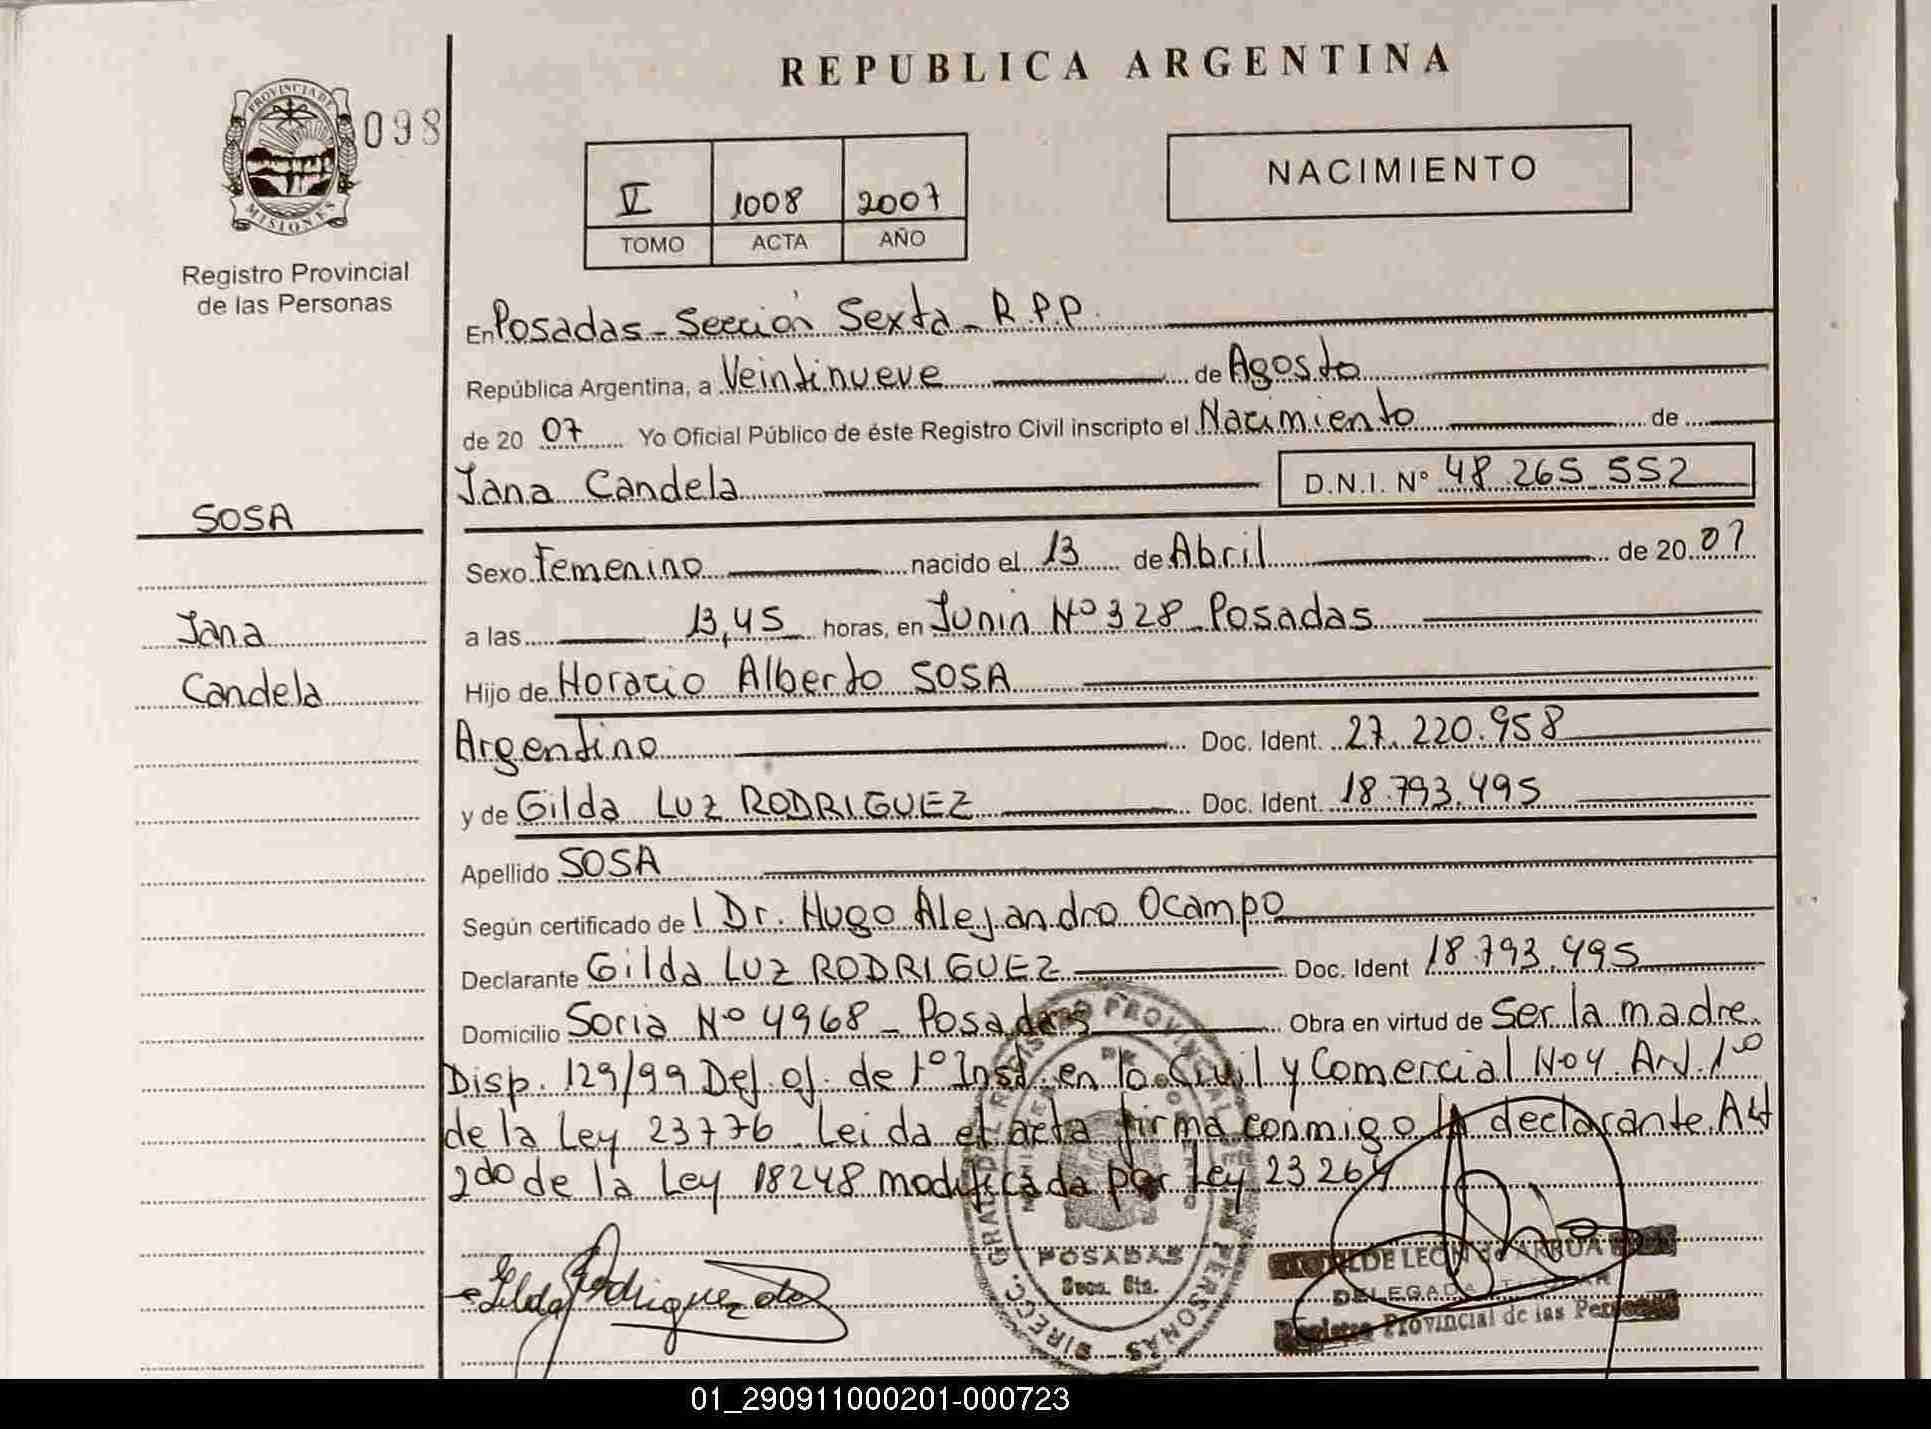 REPUBLICA ARGENTINA
PROVINCIA DE
MISIONES
098
Registro Provincial
de las Personas
V 1008 2007
TOMO ACTA AÑO
NACIMIENTO
En Posadas - Sección Sexta - R.P.P.
República Argentina, a Veintinueve de Agosto
de 20 07 Yo Oficial Público de éste Registro Civil inscripto el Nacimiento de
Jana Candela D.N.I. Nº 48.265.552
SOSA
Sexo Femenino nacido el 13 de Abril de 20 07
Jana
a las 13,45 horas, en Junin Nº 328 Posadas
Candela
Hijo de Horacio Alberto SOSA
Argentino Doc. Ident. 27.220.958
y de Gilda LUZ RODRIGUEZ Doc. Ident. 18.793.495
Apellido SOSA
Según certificado de l Dr. Hugo Alejandro Ocampo
Declarante Gilda LUZ RODRIGUEZ Doc. Ident 18.793.495
Domicilio Soria Nº 4968 - Posadas Obra en virtud de Ser la madre.
Disp. 129/99 Def. of. de 1º Inst. en lo Civil y Comercial Nº 4. Art. 1º
de la Ley 23776. Leida el acta firma conmigo la declarante. Art
2do de la Ley 18248 modificada por Ley 23264
Gilda Rodriguez
POSADAS
Secc. 6ta.
DE LEON de ARRUA
DELEGADA TITULAR
Registro Provincial de las Personas
01_290911000201-000723